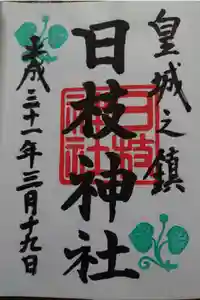 皇城之鎮
日枝神社
日枝
神社
平成二十一年三月十九日